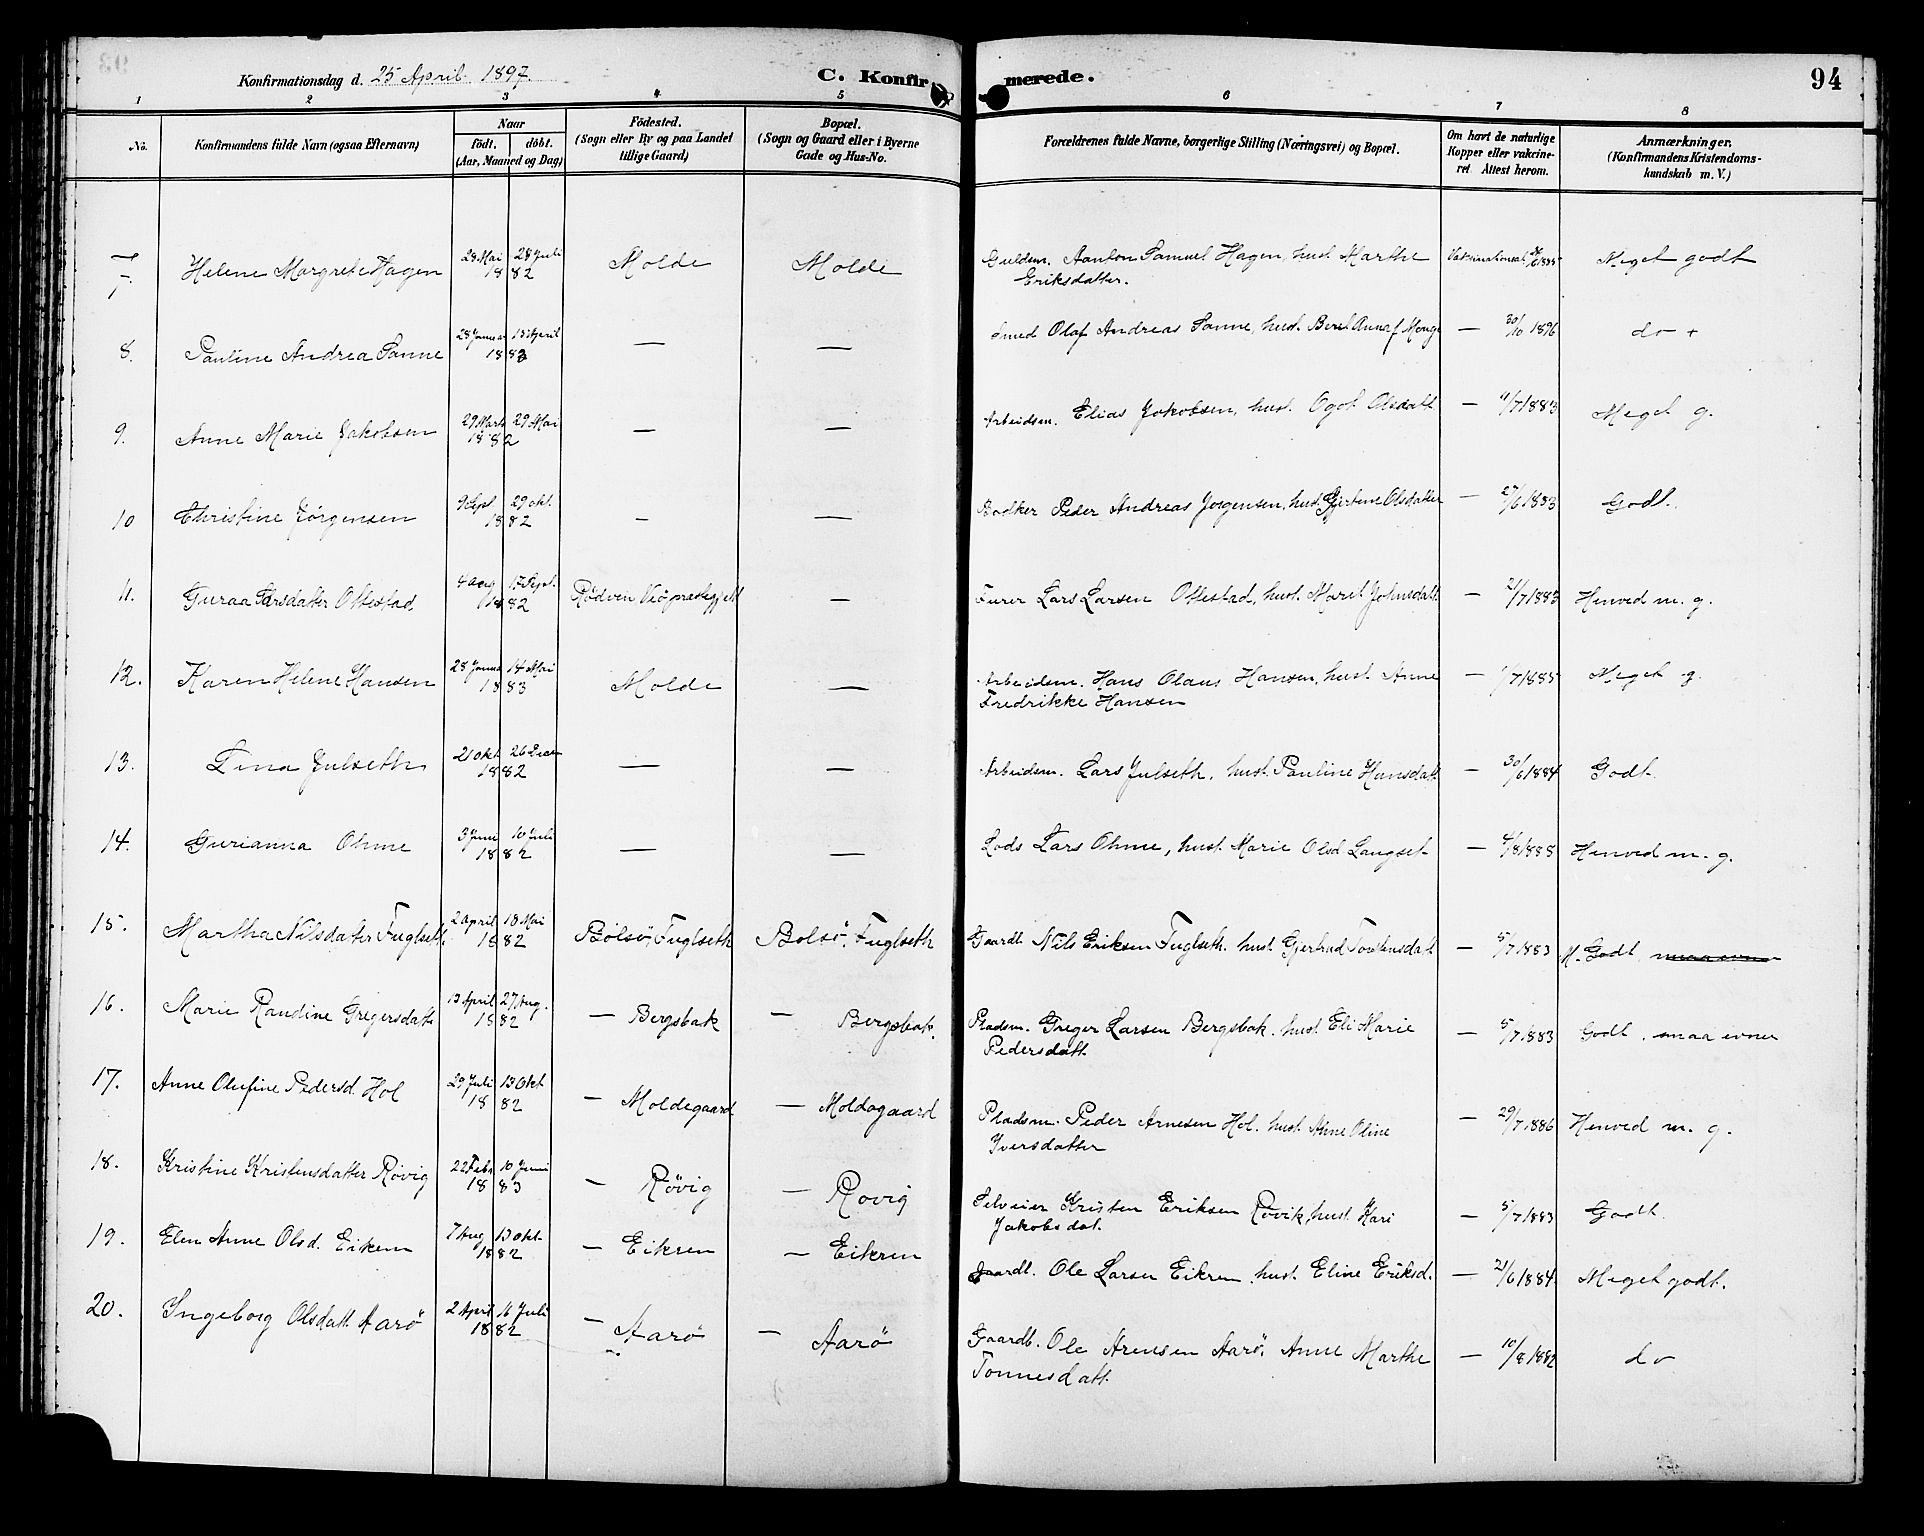 94
Konfirmationsdag d. 25 April 1897.
C. Konfirmerede.
1 2 3 4 5 6 7 8
No. Konfirmandens fulde Navn (ogsaa Efternavn) Naar født. døbt. (Aar, Maaned og Dag) Fødested. (Sogn eller By og paa Landet tillige Gaard) Bopæl. (Sogn og Gaard eller i Byerne Gade og Hus-No. Forældrenes fulde Navne, borgerlige Stilling (Næringsvei) og Bopæl. Om havt de naturlige Kopper eller vakcineret. Attest herom. Anmærkninger. (Konfirmandens Kristendomskundskab m. V.)
7 Helene Margrete Hagen 28 Mai 28 Juli 1882 Molde Molde Guldsm. Aanton Samuel Hagen, hust. Marthe Eriksdatter. Meget godt
8. Pauline Andrea Sanne 28 Januar 13 April 1882 — — Smed Olaf Andreas Sanne, hust. Beret Anna f. Monge — 30/10 1896 do +
9. Anne Marie Jakobsen 29 Marts 29 Mai 1882 — — Arbeidsm. Elias Jakobsen, hust. Ogot Olsdatt — 11/7 1883 Meget g.
10 Christine Jörgensen 9 Sept. 29 okt. 1882 — — Bødker Peder Andreas Jörgensen, hust. Gjertine Olsdatter — 27/6 1883 Godt.
11. Guraa Larsdatter Ottestad 4 Aug 17 Sept. 1882 Rødven Veö præstegjeld — Furer Lars Larsen Ottestad, hust. Marit Johnsdatt. — 21/7 1883 Henved m. g.
12. Karen Helene Hansen 28 Janua 14 Mai 1883 Molde — Arbeidsm. Hans Olaus Hansen, hust. Anne Fredrikke Hansen — 1/7 1885 Meget g.
13. Lina Julseth 21 okt 26 Dec 1882 — — Arbeidsm. Lars Julseth, hust. Pauline Hansdatt — 30/6 1884 Godt.
14. Gurianna Ohme 3 Juni 10 Juli 1882 — — Lods Lars Ohme, hust. Marie Olsd Langset — 4/8 1888 Henved m. g.
15. Martha Nilsdatter Fuglseth. 2 April 18 Mai 1882 Bölsö, Fuglseth Bolsö, Fuglseth Gaardb. Nils Eriksen Fuglseth. hust. Gjertrud Tostensdatt — 5/7 1883 M. Godt.
16. Marie Randine Gregersdatt 13 April 27 Aug. 1882 — Bergsbak — Bergsbak. Pladsm. Greger Larsen Bergsbak. hust. Eli Marie Pedersdatt — 5/7 1883 Godt. smaa evner
17. Anne Olufine Pedersd. Hol 29 Juli 13 Okt 1882 — Moldegaard — Moldegaard Pladsm. Peder Arnesen Hol. hust. Anne Oline Iversdatter — 29/7 1886 Henved m. g.
18. Kristine Kristensdatter Rövig 22 Feb. 10 Juni 1883 — Rövig — Rovig Selveier Kristen Eriksen Rövik, hust. Kari Jakobsdat. — 5/7 1883 Godt.
19. Elen Anne Olsd. Eikrem 7 Aug 13 okt. 1882 — Eikrem — Eikrem Gaardb. Ole Larsen Eikrem, hust. Eline Eriksd. — 21/6 1884. Meget godt.
20. Ingeborg Olsdatt. Aarö 2 April 16 Juli 1882 — Aarö — Aarö Gaardb. Ole Arensen Aarö. Anne Marthe Tonnesdatt. — 10/8 1882 do